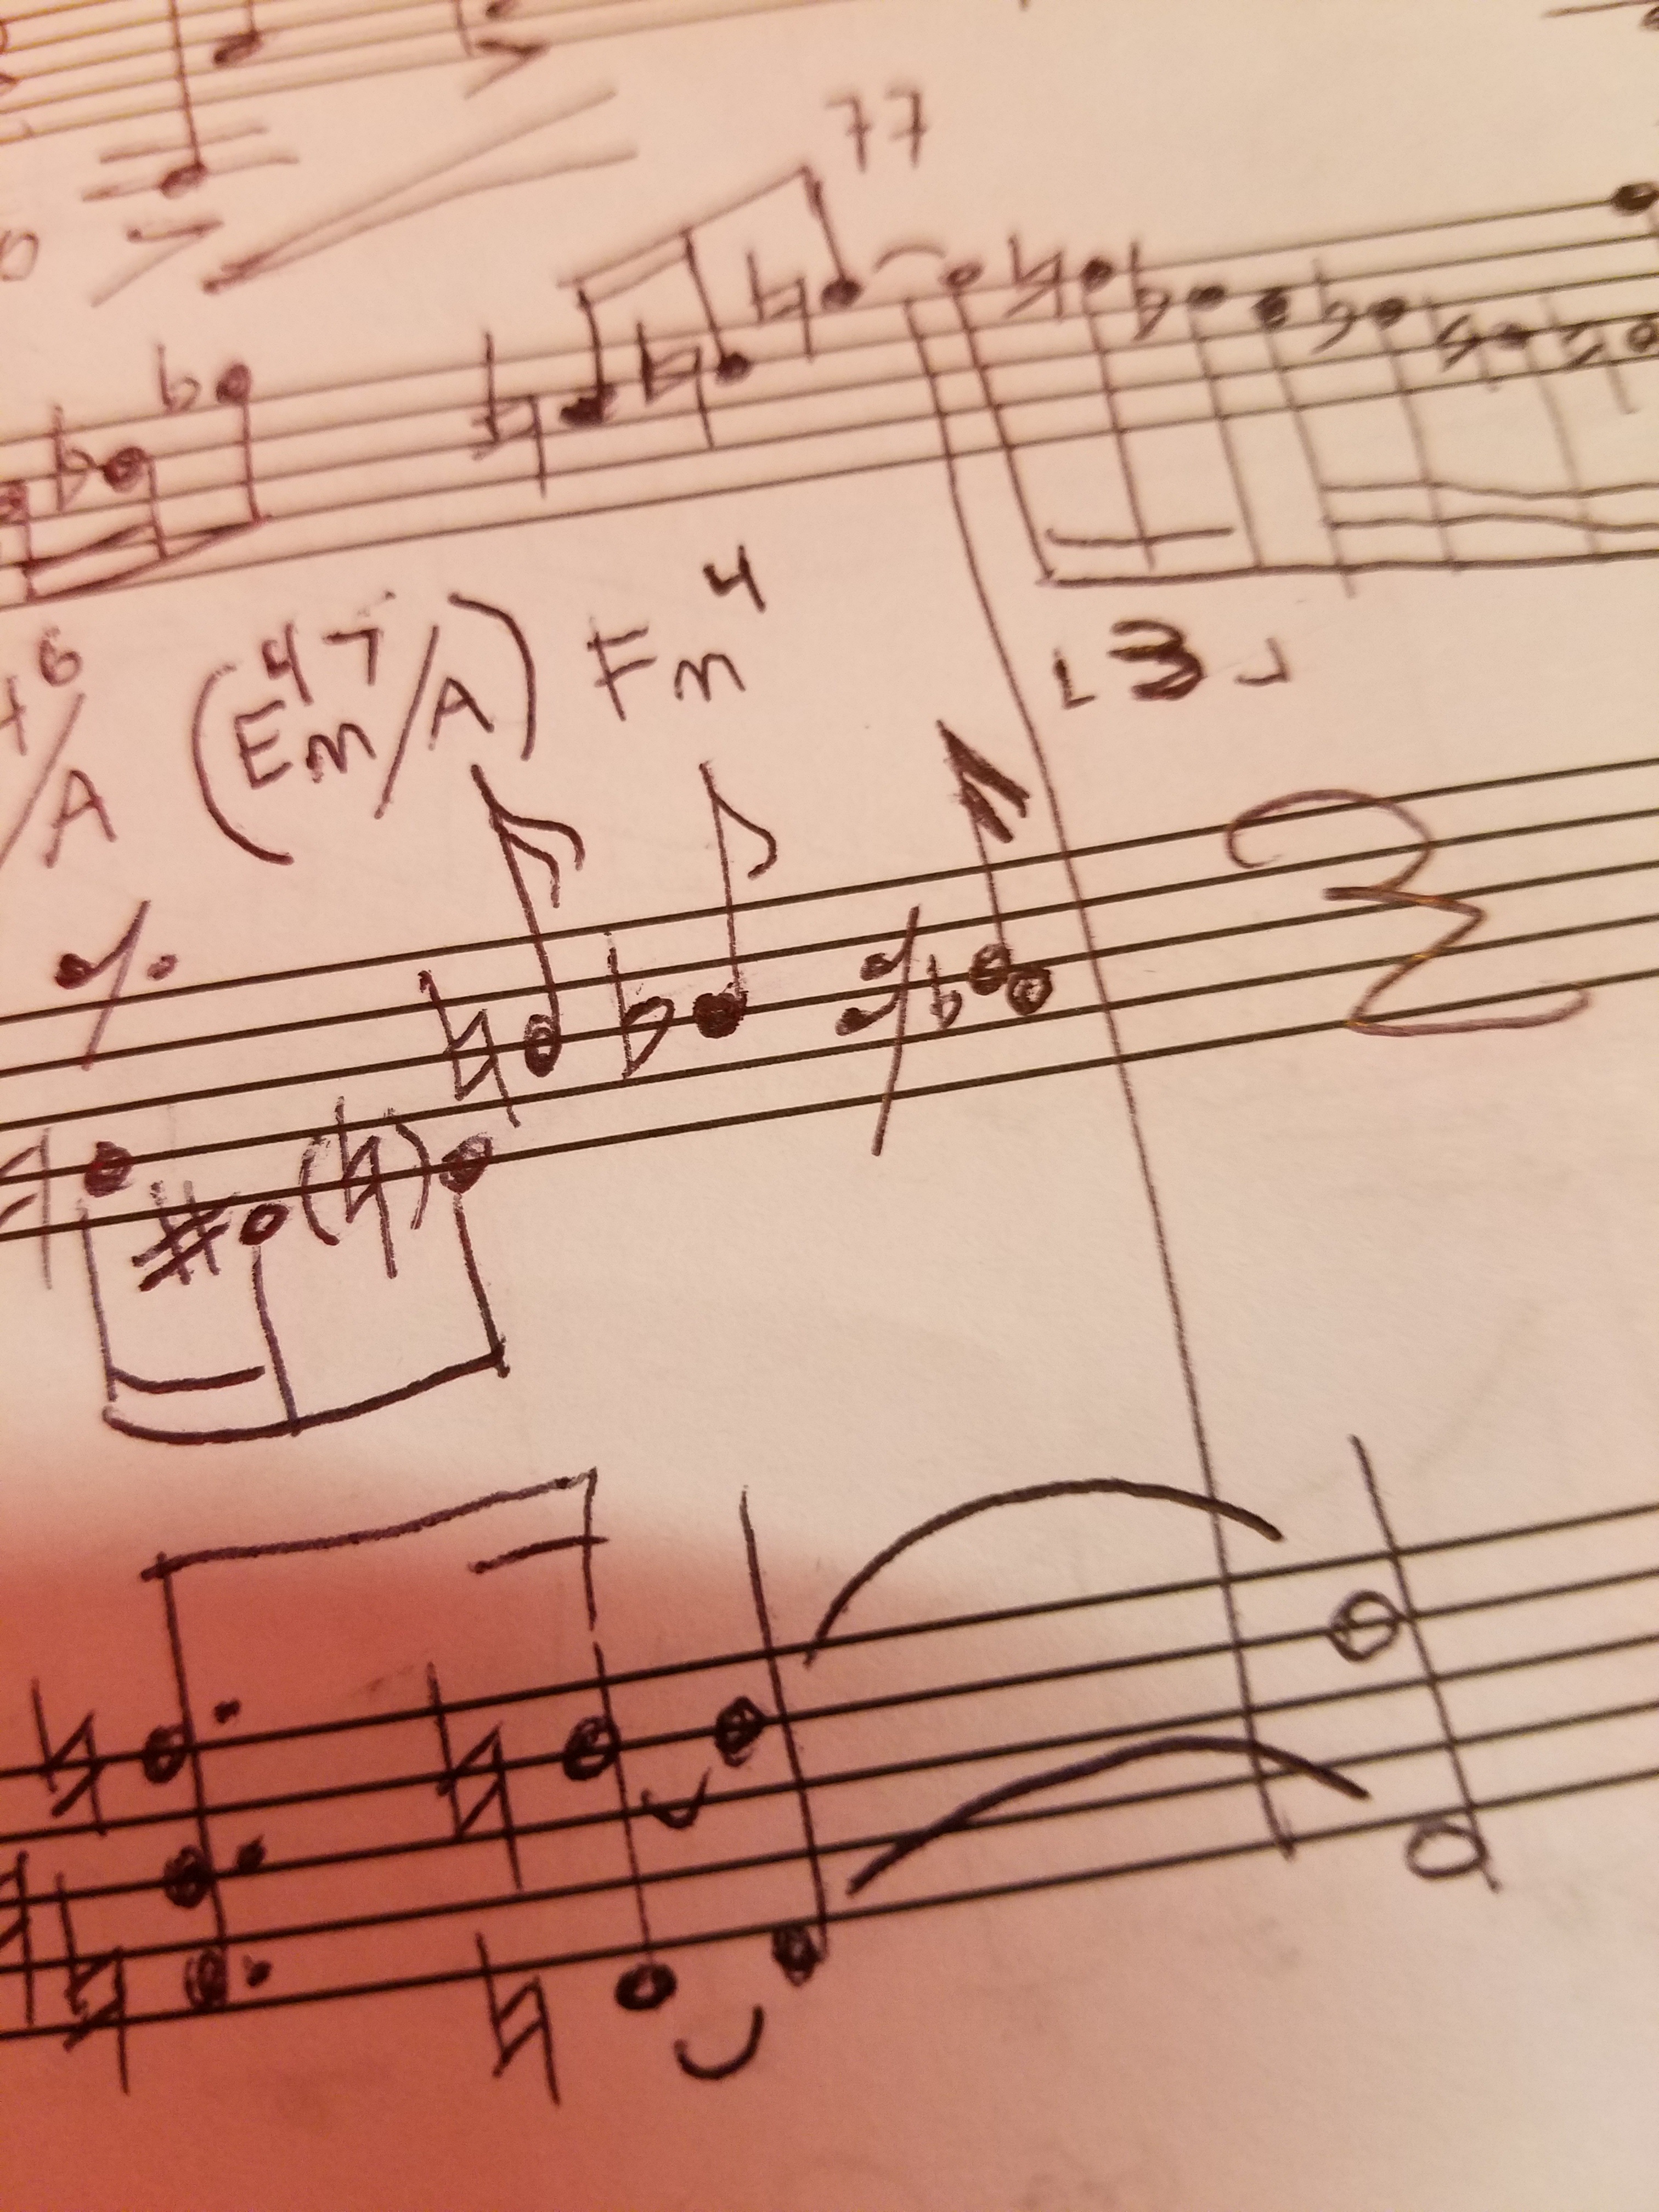 77
6
/A (Em47/A) Fm4
3